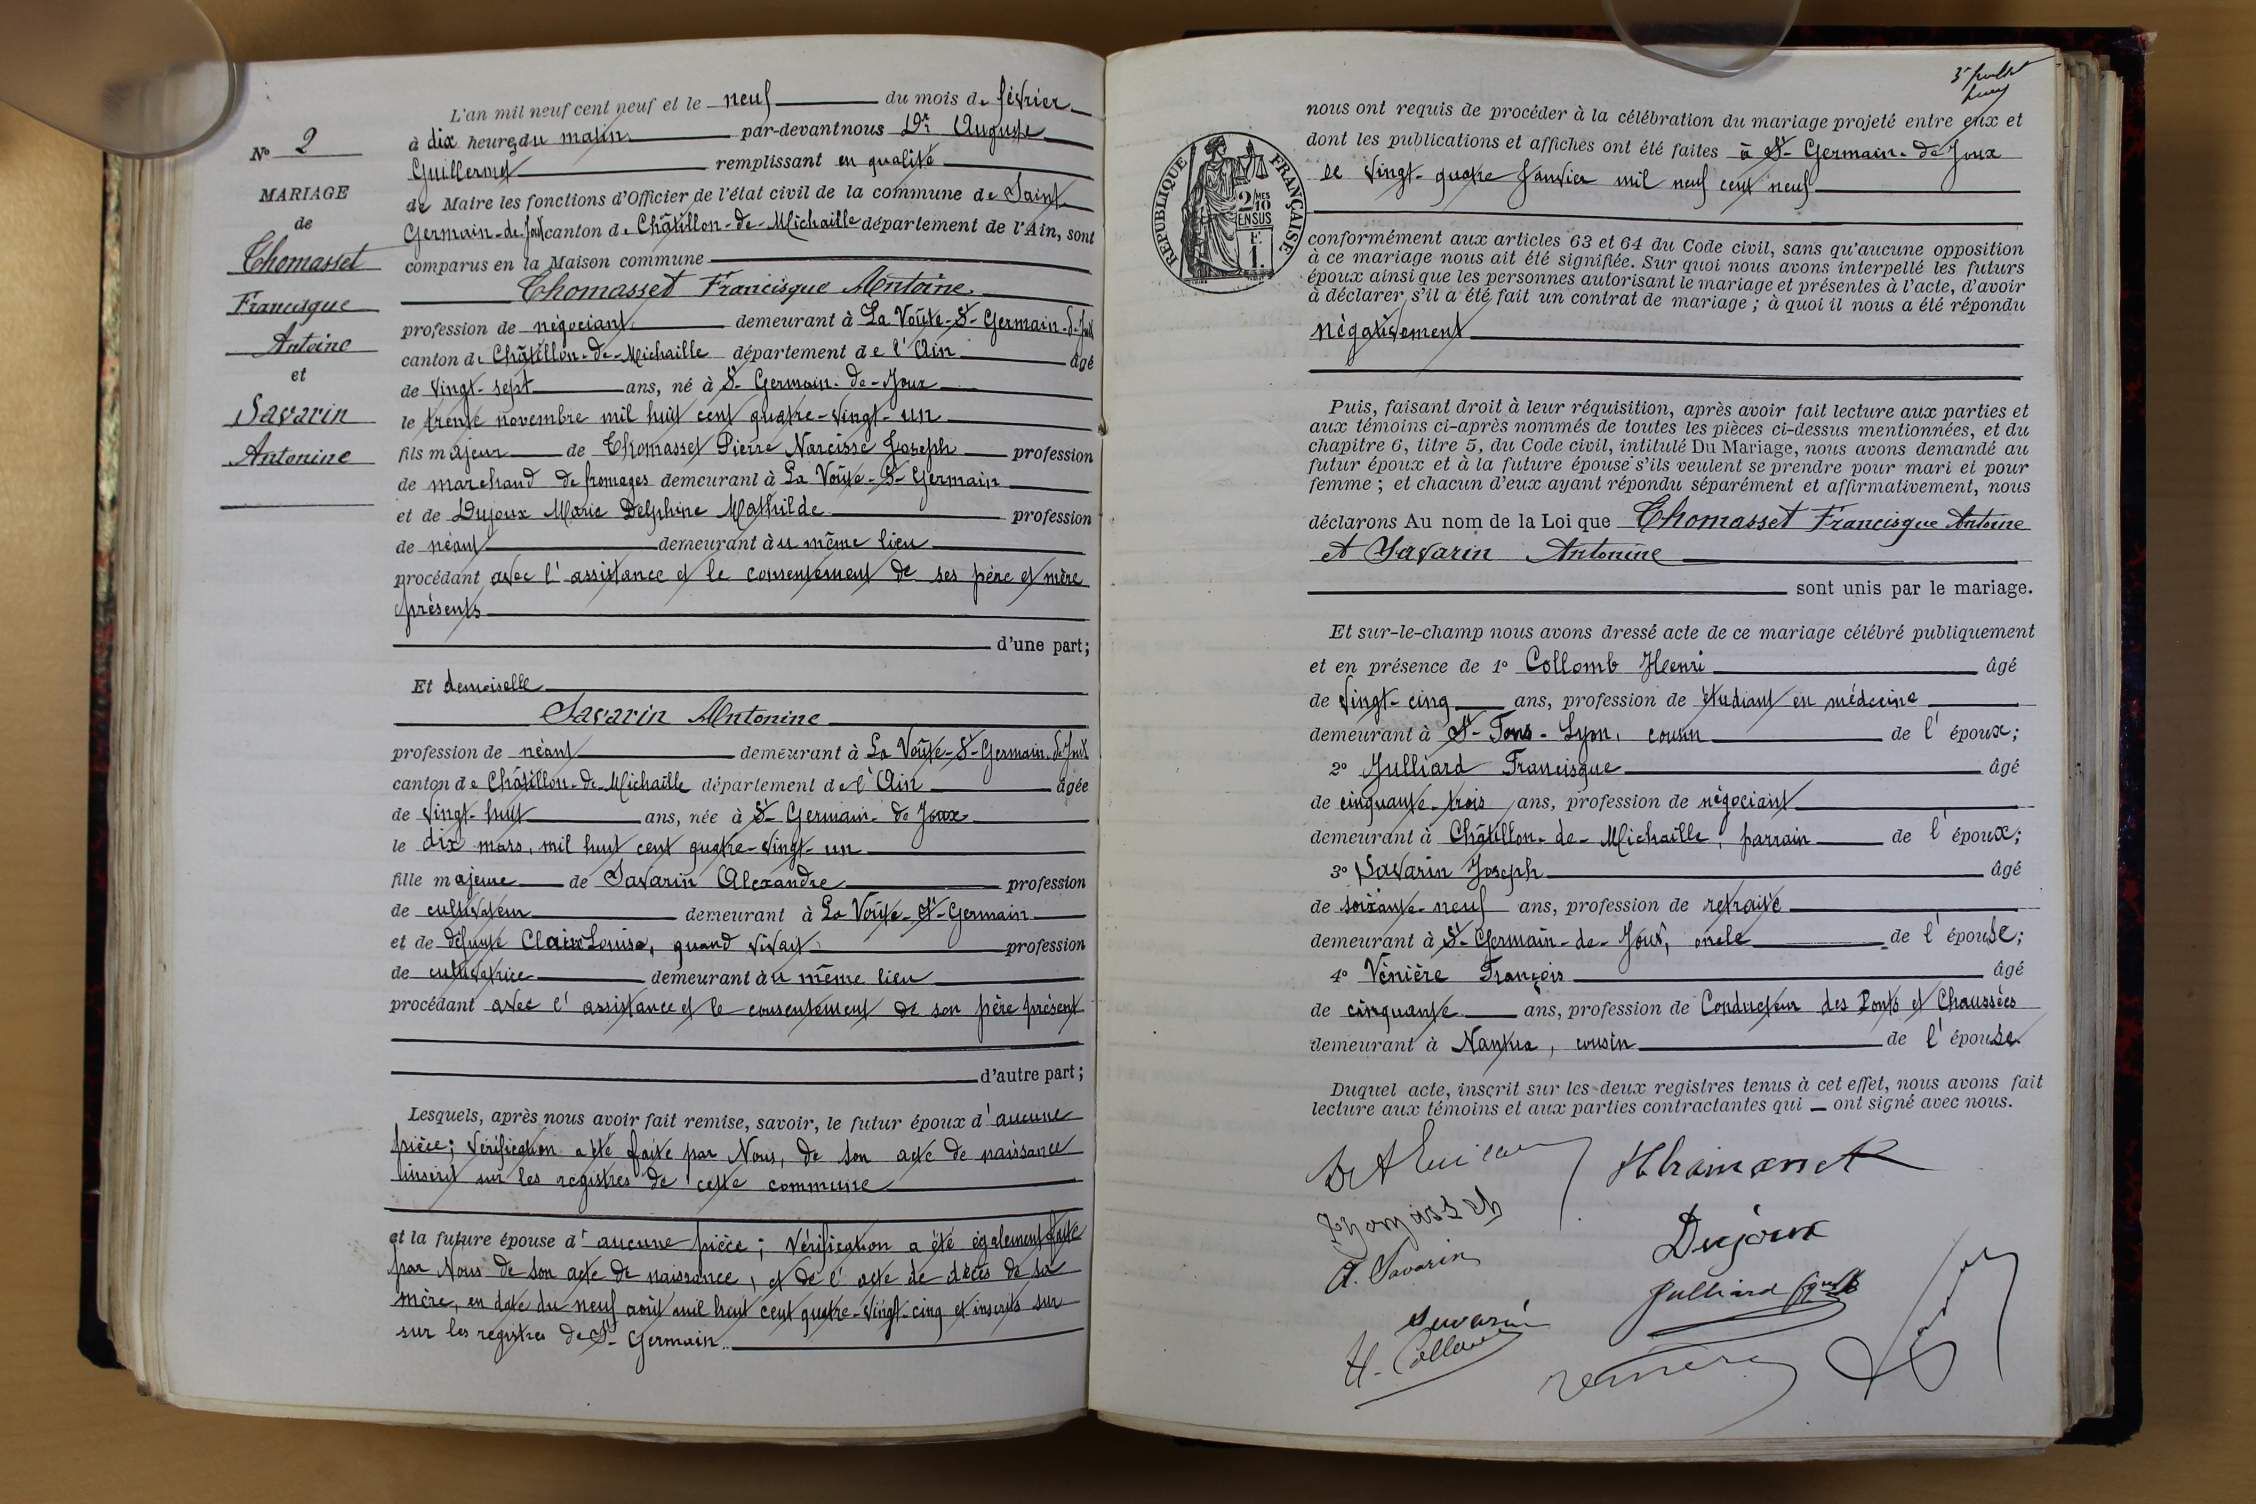 L'an mil neuf cent neuf et le neuf du mois de février
à dix heures du matin par-devant nous Dr Auguste
Guillermet remplissant en qualité
de Maire les fonctions d'Officier de l'état civil de la commune de Saint
Germain-de-Joux canton de Châtillon-de-Michaille département de l'Ain, sont
comparus en la Maison commune
Thomasset Francisque Antoine
profession de négociant demeurant à La Voûte-St-Germain-d-Joux
canton de Châtillon-de-Michaille département de l'Ain âgé
de vingt-sept ans, né à St Germain-de-Joux
le trente novembre mil huit cent quatre-vingt-un
fils majeur de Thomasset Pierre Narcisse Joseph profession
de marchand de fromages demeurant à La Voûte-St-Germain
et de Dujoux Marie Delphine Mathilde profession
de néant demeurant àu même lieu
procédant avec l'assistance et le consentement de ses père et mère
présents
d'une part;
Et demoiselle
Savarin Antonine
profession de néant demeurant à La Voûte-St-Germain-d-Joux
canton de Châtillon-de-Michaille département del'Ain âgée
de vingt-huit ans, née à St Germain-de Joux
le dix mars, mil huit cent quatre-vingt-un
fille majeure de Savarin Alexandre profession
de cultivateur demeurant à La Voûte-St-Germain
et de défunte Claix Louise, quand vivait profession
de cultivatrice demeurant àu même lieu
procédant avec l'assistance et le consentement de son père présent
d'autre part;
Lesquels, après nous avoir fait remise, savoir, le futur époux d'aucune
pièce; vérification a été faite par Nous, de son acte de naissance
inscrit sur les registres de cette commune
et la future épouse d'aucune pièce; vérification a été également faite
par Nous de son acte de naissance, et de l'acte de décès de sa
mère, en date du neuf août mil huit cent quatre-vingt-cinq et inscrits sur
sur les registres de St Germain
No 2
MARIAGE
de
Thomasset
Francisque
Antoine
et
Savarin
Antonine
nous ont requis de procéder à la célébration du mariage projeté entre eux et
dont les publications et affiches ont été faites à St-Germain-de Joux
le vingt-quatre janvier mil neuf cent neuf
RÉPUBLIQUE FRANÇAISE
2/10 MES
EN SUS
F.
1.
conformément aux articles 63 et 64 du Code civil, sans qu'aucune opposition
à ce mariage nous ait été signifiée. Sur quoi nous avons interpellé les futurs
époux ainsi que les personnes autorisant le mariage et présentes à l'acte, d'avoir
à déclarer s'il a été fait un contrat de mariage; à quoi il nous a été répondu
négativement
Puis, faisant droit à leur réquisition, après avoir fait lecture aux parties et
aux témoins ci-après nommés de toutes les pièces ci-dessus mentionnées, et du
chapitre 6, titre 5, du Code civil, intitulé Du Mariage, nous avons demandé au
futur époux et à la future épouse s'ils veulent se prendre pour mari et pour
femme; et chacun d'eux ayant répondu séparément et affirmativement, nous
déclarons Au nom de la Loi que Thomasset Francisque Antoine
et Savarin Antonine
sont unis par le mariage.
Et sur-le-champ nous avons dressé acte de ce mariage célébré publiquement
et en présence de 1o Collomb Henri âgé
de vingt-cinq ans, profession de étudiant en médecine
demeurant à St-Fons-Lyon, cousin de l'époux;
2o Julliard Francisque âgé
de cinquante-trois ans, profession de négociant
demeurant à Châtillon-de-Michaille, parrain de l'époux;
3o Savarin Joseph âgé
de soixante-neuf ans, profession de retraité
demeurant à St-Germain-de-Joux, oncle de l'épouse;
4o Vénière François âgé
de cinquante ans, profession de Conducteur des Ponts et Chaussées
demeurant à Nantua, cousin de l'épouse
Duquel acte, inscrit sur les deux registres tenus à cet effet, nous avons fait
lecture aux témoins et aux parties contractantes qui ont signé avec nous.
Thomasset
Dujoux
A. Savarin
Julliard
Savarin
H. Collomb
Venière